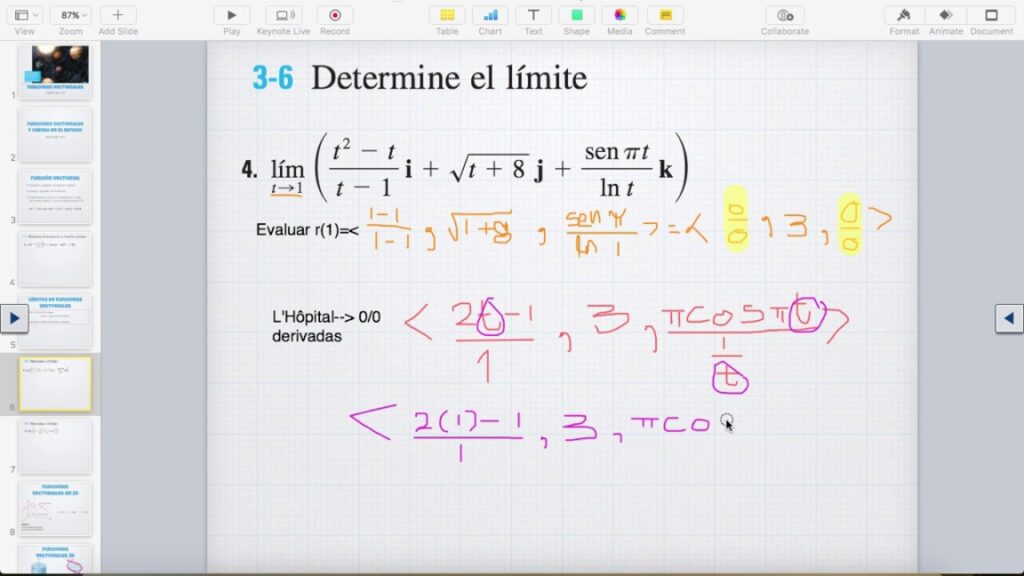 View
87%
Zoom
Add Slide
Play
Keynote Live
Record
Table
Chart
Text
Shape
Media
Comment
Collaborate
Format
Animate
Document
1
FUNCIONES VECTORIALES
2
FUNCIONES VECTORIALES
Y CURVAS EN EL ESPACIO
3
FUNCIÓN VECTORIAL
4
5
LÍMITES DE FUNCIONES
VECTORIALES
6
7
8
FUNCIONES
VECTORIALES EN 2D
FUNCIONES
VECTORIALES 3D
3-6 Determine el límite
4. lím t→1 ( (t² − t)/(t − 1) i + √(t + 8) j + (sen πt)/(ln t) k )
Evaluar r(1)=< (1-1)/(1-1) , √(1+8) , (sen π)/(ln 1) > = < 0/0 , 3 , 0/0 >
L'Hôpital--> 0/0
derivadas
< (2t-1)/1 , 3 , (π cos πt)/(1/t) >
< (2(1)-1)/1 , 3 , π co